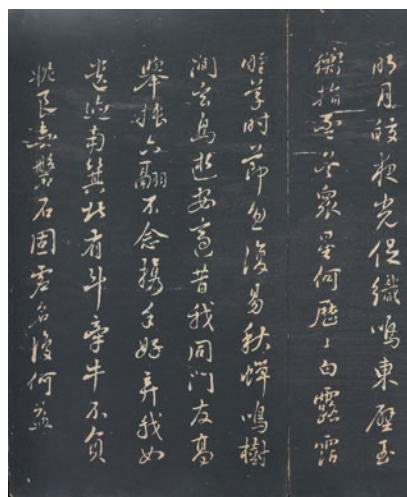 明月皎夜光促織鳴東壁玉
衡指孟冬衆星何歷〻白露霑
野草時節忽復易秋蟬鳴樹
間玄鳥逝安適昔我同門友高
舉振六翮不念攜手好棄我如
遺跡南箕北有斗牽牛不負
軛良無盤石固虛名復何益